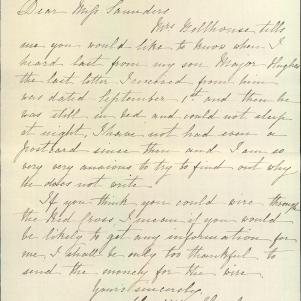 Dear Miss Saunders
Mrs Wellhouse tells
me you would like to know when I
heard last from my son Mayor Hughes
the last letter I received from him
was dated September 1st. and then he
was still in bed and could not sleep
at night, I have not had even a
Postcard since then and I am so
very very anxious to try to find out why
he does not write.
If you think you could wire through
the Red Cross I mean if you would
be likely to get any information for
me I shall be only too thankful to
send the money for the wire
Yours sincerely,